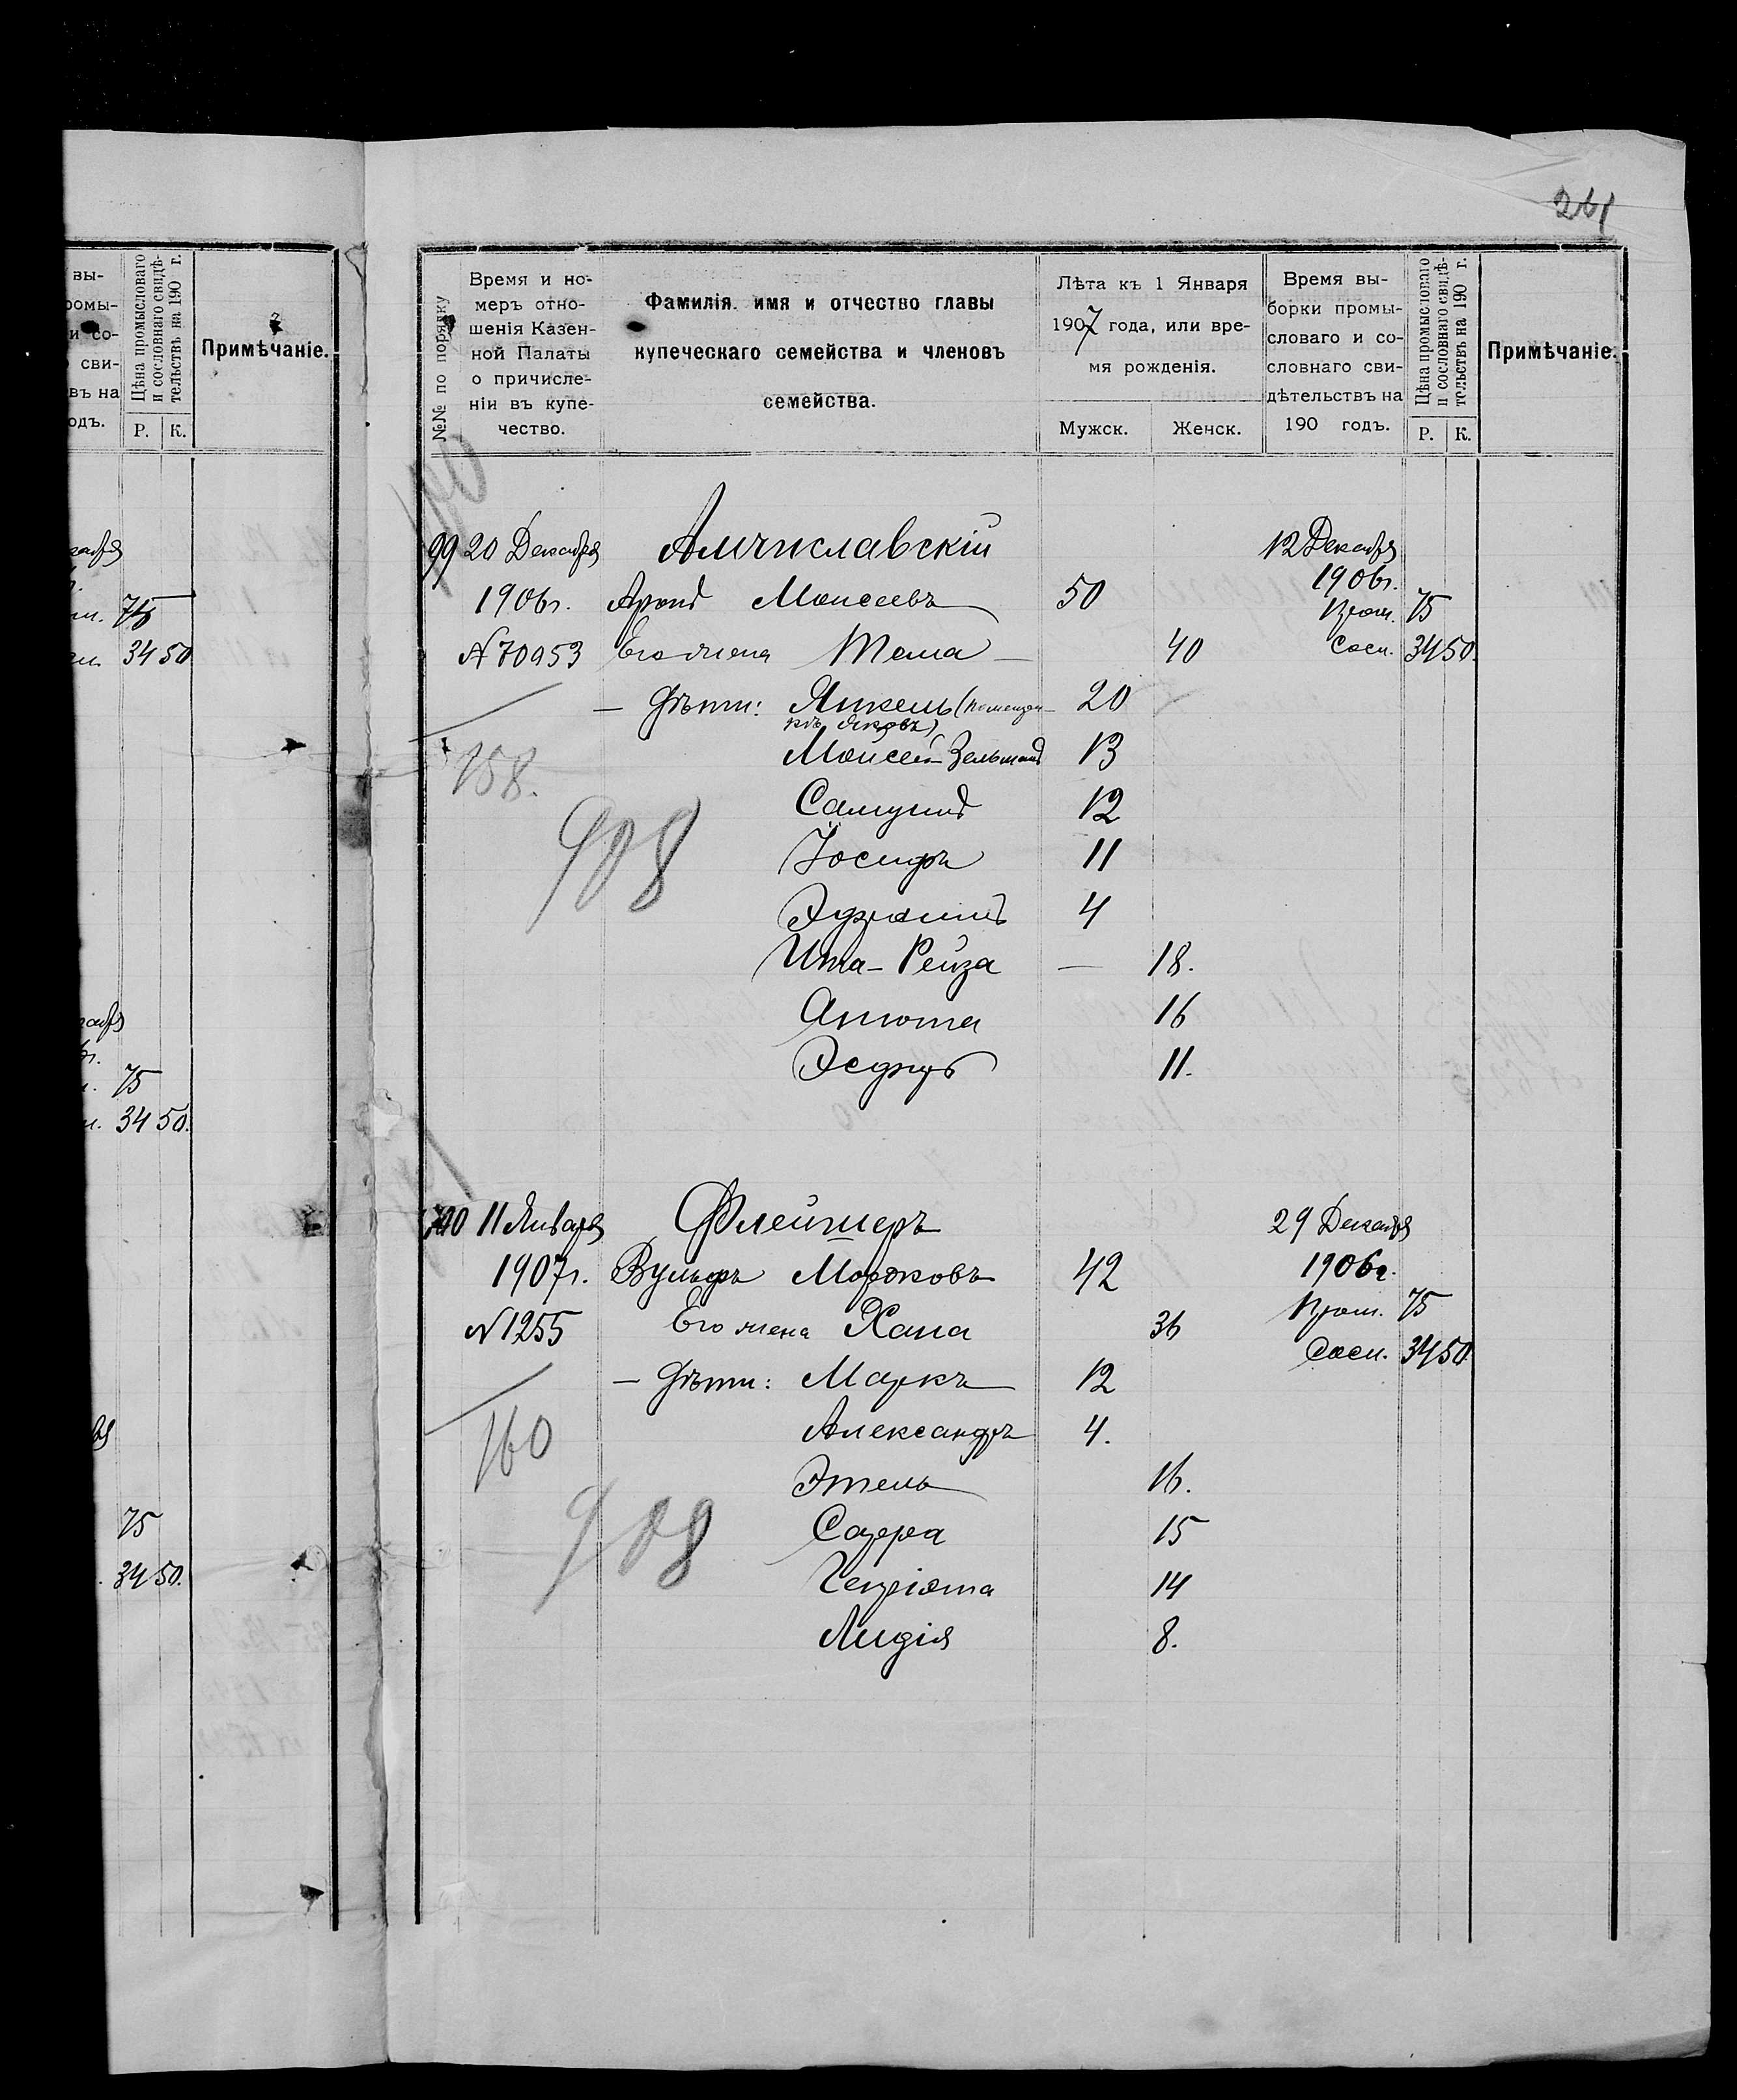 вы-
ромы-
и со-
сви-
въ на
одъ.
Цѣна промысловаго
и сословнаго свидѣ-
тельствъ на 190 г.
Р. К.
Примѣчаніе.
75
34 50
75
34 50.
75
34 50.
241
№№ по порядку
Время и но-
меръ отно-
шенія Казен-
ной Палаты
о причисле-
ніи въ купе-
чество.
Фамилія, имя и отчество главы
купеческаго семейства и членовъ
семейства.
Лѣта къ 1 Января
1907 года, или вре-
мя рожденія.
Мужск. Женск.
Время вы-
борки промы-
словаго и со-
словнаго сви-
дѣтельствъ на
190 годъ.
Цѣна промысловаго
и сословнаго свидѣ-
тельствъ на 190 г.
Р. К.
Примѣчаніе.
99 20 Декабря Амчиславскій 12 Декабря
1906г. Аронъ Моисеевъ 50 1906г.
Пром. 75
№ 70953 Его жена Тема 40 Сосл. 34 50.
— Дѣти: Янкель (
Яковъ) 20
158. Моисей-Зельманъ 13
Самуилъ 12
908 Іосифъ 11
4
Ита-Рейза — 18.
Анюта 16
Эсфирь 11.
100 11 Января Флейшеръ 29 Декабря
1907г. Вульфъ Мордковъ 42 1906г.
№ 1255 Его жена Хана 36 Пром. 75
Сосл. 34 50
— Дѣти: Маркъ 12
160 Александръ 4.
Этель 16.
908 Сарра 15
Генріэта 14
Лидія 8.